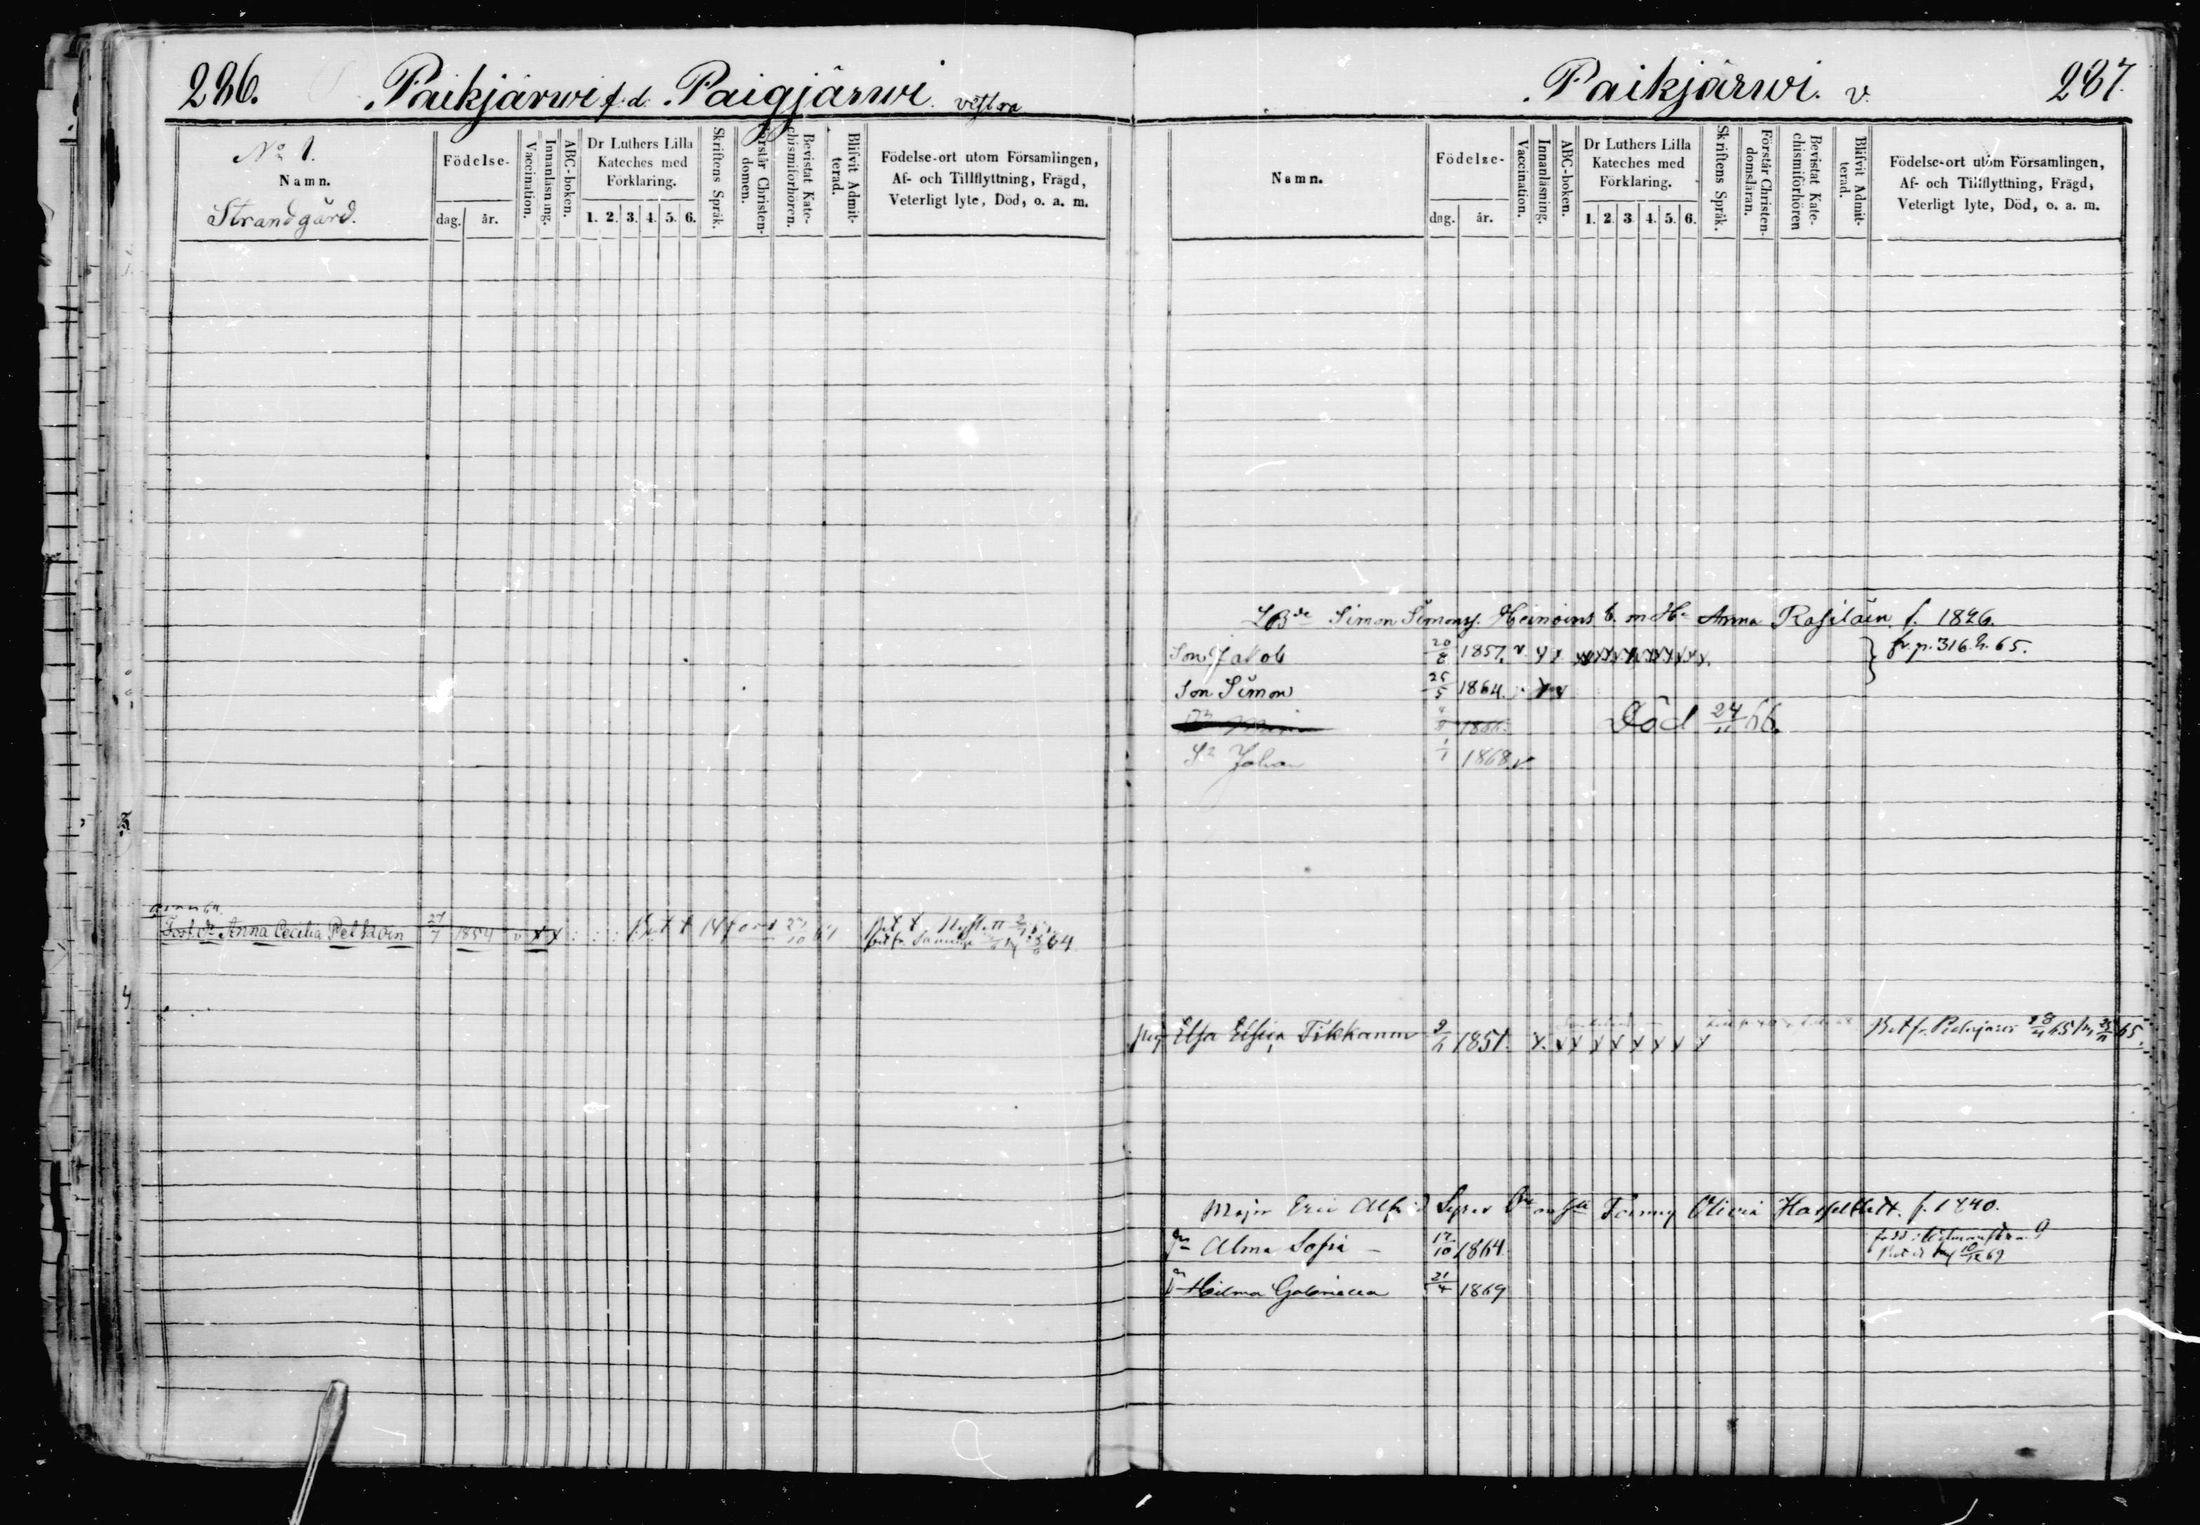 286. Paikjärwi f.d. Paigjärwi vestra
No 1.
Namn.
Strandgård.
Födelse-
dag. år.
Vaccination.
Innanläsning.
ABC-boken.
Dr Luthers Lilla
Kateches med
Förklaring.
1. 2. 3. 4. 5. 6.
Skriftens Språk.
Förstår Christen-
domen.
Bevistat Kate-
chismiförhören.
Blifvit Admit-
terad.
Födelse-ort utom Församlingen,
Af- och Tillflyttning, Frägd,
Veterligt lyte, Död, o. a. m.
Anna Cecilia Pelkoin 27/7 1854 v x x
64
Paikjärwi. v. 287.
Namn.
Födelse-
dag. år.
Vaccination.
Innanläsning.
ABC-boken.
Dr Luthers Lilla
Kateches med
Förklaring.
1. 2. 3. 4. 5. 6.
Skriftens Språk.
Förstår Christen-
domsläran.
Bevistat Kate-
chismiförhören
Blifvit Admit-
terad.
Födelse-ort utom Församlingen,
Af- och Tillflyttning, Frägd,
Veterligt lyte, Död, o. a. m.
Simon Simons. Heinoins b. m Ha Anna Rasiläin f. 1826.
Son Jakob 20/8 1857. v x x x x x x x x x x fr. p. 316. 65.
Son Simon 25/5 1864. x x
1866. Död 24/11 66.
Sn Johan 1/1 1868 v
pig Elsa Tikkanen 9/11 1851. x. x x x x x x x x Bet fr. 65 65.
Major Eric Alfrd Fanny Olivia Hasselblatt. f. 1840.
Alma Sofia – 17/10 1864.
10/12 69
Hilma 21/4 1869